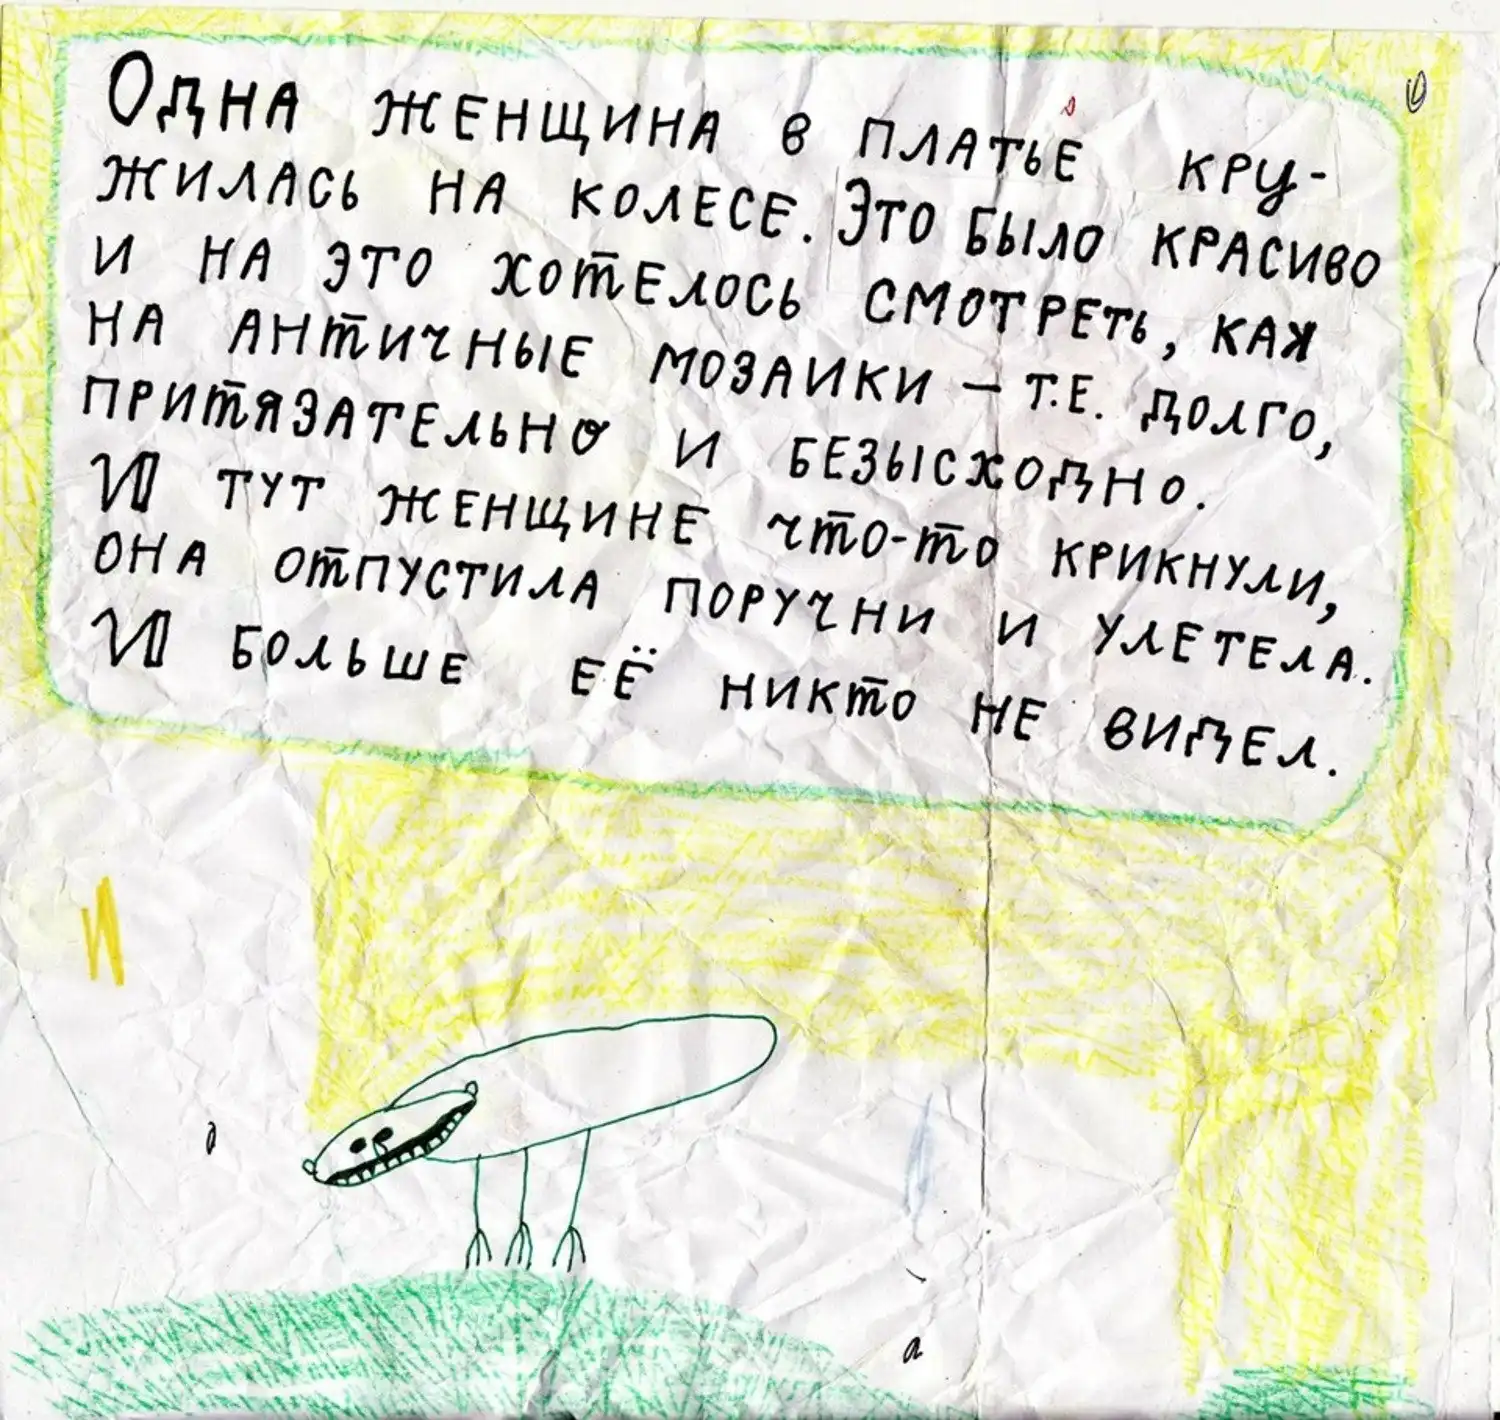 Одна женщина в платье кру-
жилась на колесе. Это было красиво
и на это хотелось смотреть, как
на античные мозаики – т.е. долго,
притязательно и безысходно.
И тут женщине что-то крикнули,
она отпустила поручни и улетела.
И больше её никто не видел.
и
а